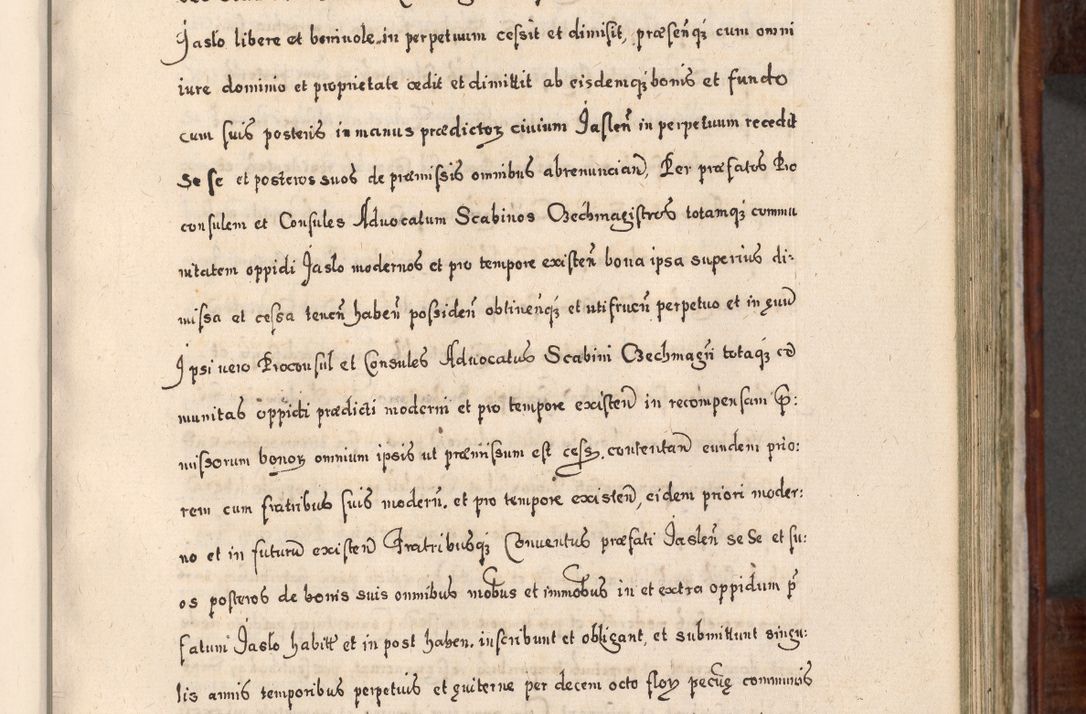 Jasło libere et benivole in perpetuum cessit et dimisit, præsenq₃ cum omni
iure dominio et proprietate cedit et dimittit ab eisdemq₃ bonis et fundo
cum suis posteris in manus prædictoꝝ civium Jaslen̄ in perpetuum recedit
Se se et posteros suos de præmissis omnibus abrenuncian̄, Per præfatos Pro
consulem et Consules Advocatum Scabinos Czechmagistros totamq₃ commu
nitatem oppidi Jaslo modernos et pro tempore existen̄ bona ipsa superius di-
missa et cessa tenen̄ haben̄ possiden̄ obtinen̄q₃ et utifruen̄ perpetuo et in ævū
Ipsi vero Proconsul et Consules Advocatus Scabini Czechmagr̄i totaq₃ cō
munitas oppidi prædicti moderni et pro tempore existen̄ in recompensam p̄:
missorum bonoꝝ omnium ipsis ut præmissum est cess. contentan̄ eundem prio:
rem cum fratribus suis modern̄. et pro tempore existen̄, eidem priori moder:
no et in futurū existen̄ Fratribusq₃ Conventus præfati Jaslen̄ se se et su:
os posteros de bonis suis omnibus mobus et immobus in et extra oppidum p̄
fatum Jaslo habitꝭ et in post haben. inscribunt et obligant, et submittunt singu:
lis annis temporibus perpetuis et æviterne per decem octo floꝝ pecūę communis